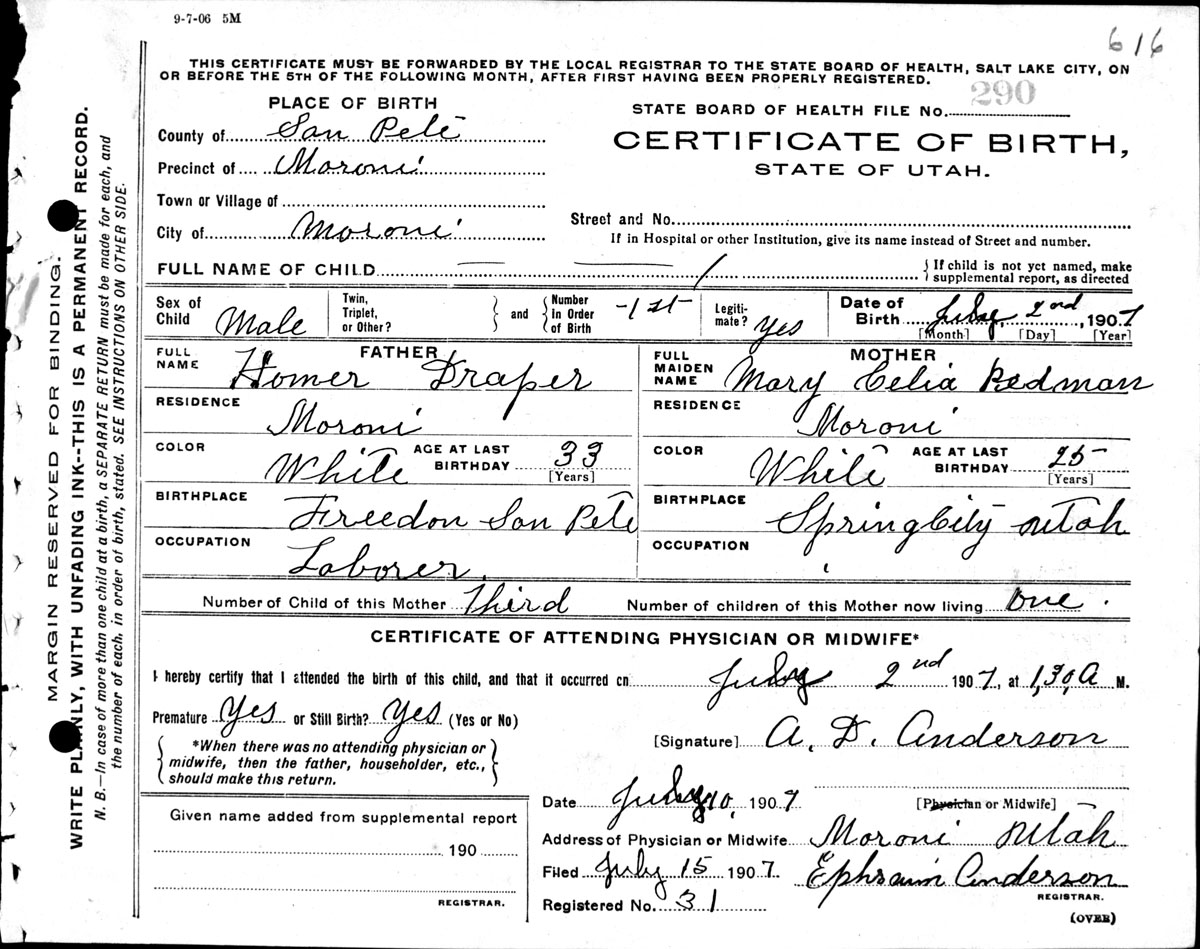 9-7-06 5M
616
THIS CERTIFICATE MUST BE FORWARDED BY THE LOCAL REGISTRAR TO THE STATE BOARD OF HEALTH, SALT LAKE CITY, ON
OR BEFORE THE 5TH OF THE FOLLOWING MONTH, AFTER FIRST HAVING BEEN PROPERLY REGISTERED.
PLACE OF BIRTH
County of San Pete
Precinct of Moroni
Town or Village of
City of Moroni
STATE BOARD OF HEALTH FILE No. 290
CERTIFICATE OF BIRTH,
STATE OF UTAH.
Street and No.
If in Hospital or other Institution, give its name instead of Street and number.
FULL NAME OF CHILD — — / { If child is not yet named, make
supplemental report, as directed
Sex of Child Male
Twin, Triplet, or Other? } and { Number In Order of Birth -1st-
Legiti-mate? Yes
Date of Birth July 2nd, 1907
[Month] [Day] [Year]
FATHER
FULL NAME Homer Draper
RESIDENCE
Moroni
COLOR White AGE AT LAST BIRTHDAY 33
[Years]
BIRTHPLACE
Freedon San Pete
OCCUPATION
Laborer.
MOTHER
FULL MAIDEN NAME Mary Celia Redman
RESIDENCE
Moroni
COLOR White AGE AT LAST BIRTHDAY 25
[Years]
BIRTHPLACE
Spring City Utah
OCCUPATION
Number of Child of this Mother Third Number of children of this Mother now living one.
CERTIFICATE OF ATTENDING PHYSICIAN OR MIDWIFE*
I hereby certify that I attended the birth of this child, and that it occurred on July 2nd 1907, at 1,30, A M.
Premature Yes or Still Birth? Yes (Yes or No)
{ *When there was no attending physician or
midwife, then the father, householder, etc.,
should make this return. }
[Signature] A. D. Anderson
[Physician or Midwife]
Date July 10, 1907
Address of Physician or Midwife Moroni Utah
Filed July 15 1907 Ephraim Anderson
REGISTRAR.
Registered No. 31
(OVER)
Given name added from supplemental report
190
REGISTRAR.
MARGIN RESERVED FOR BINDING.
WRITE PLAINLY, WITH UNFADING INK--THIS IS A PERMANENT RECORD.
N. B.—In case of more than one child at a birth, a SEPARATE RETURN must be made for each, and
the number of each, in order of birth, stated. SEE INSTRUCTIONS ON OTHER SIDE.